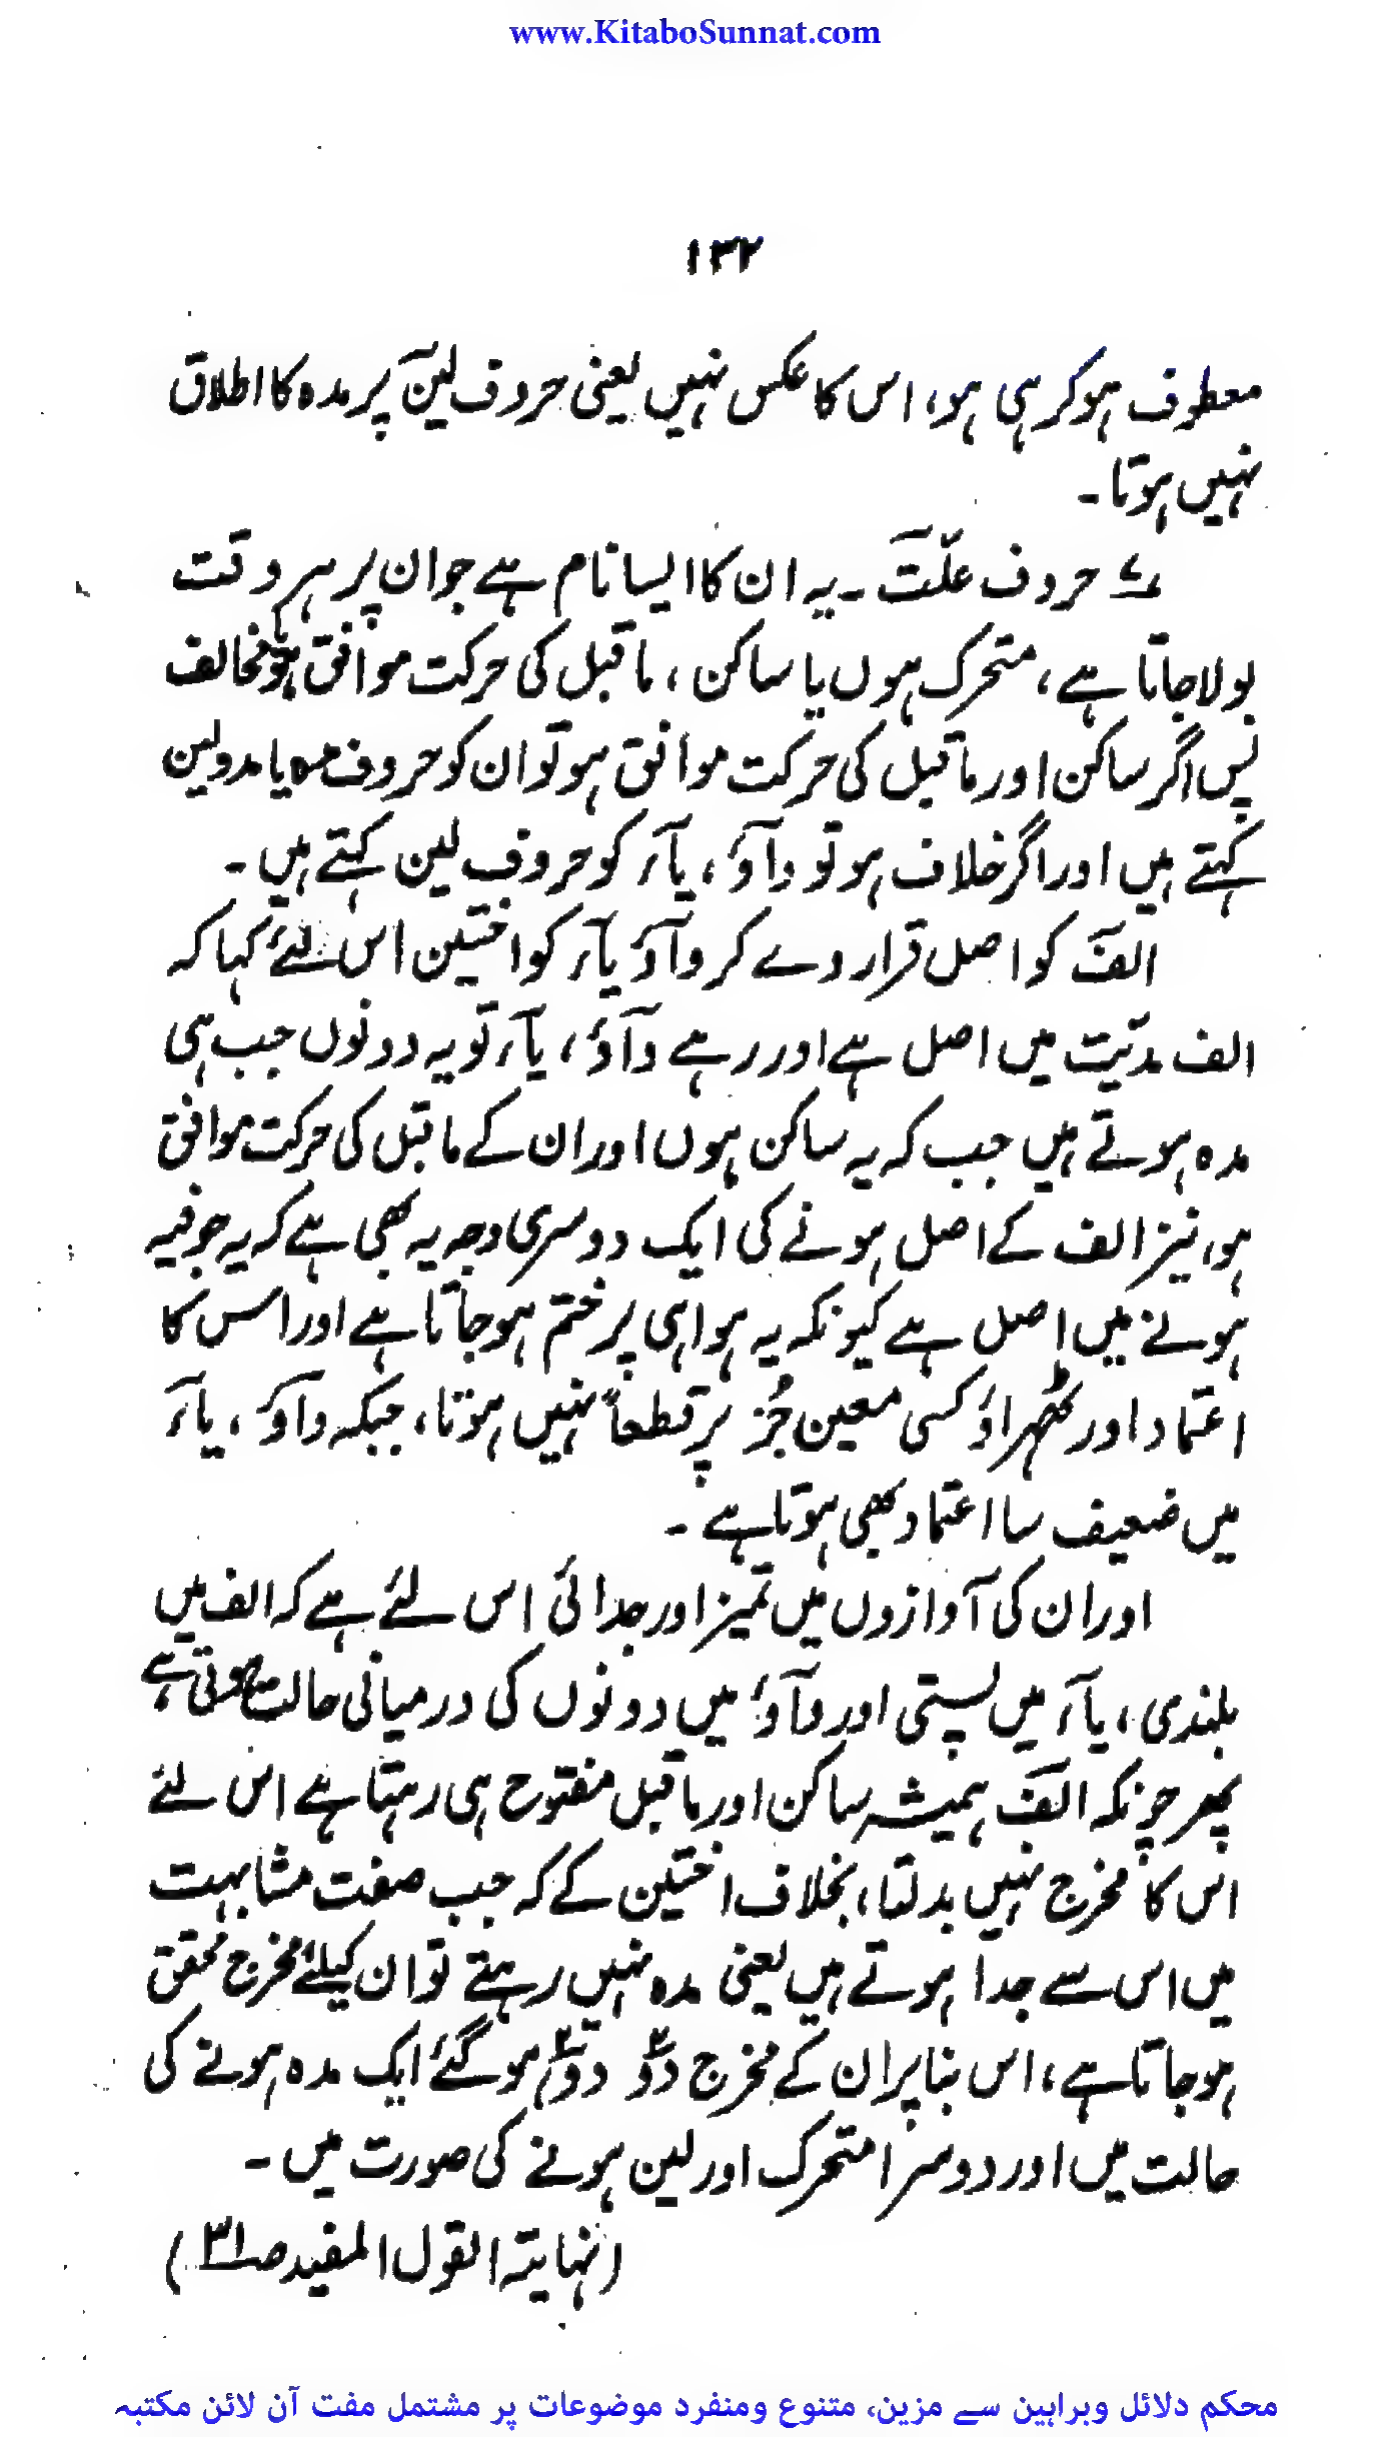 www.KitaboSunnat.com
۱۳۲
معطوف ہوکر ہی ہو، اس کا عکس نہیں یعنی حروف لین پر مدہ کا اطلاق
نہیں ہوتا۔
حروف علّت ۔ یہ ان کا ایسا نام ہے جو ان پر ہر وقت
بولا جاتا ہے، متحرک ہوں یا ساکن، ماقبل کی حرکت موافق ہو یا مخالف
پس اگر ساکن اور ماقبل کی حرکت موافق ہو تو ان کو حروف مدہ یا مدولین
کہتے ہیں اور اگر خلاف ہو تو واؤ، یاء کو حروف لین کہتے ہیں۔
الف کو اصل قرار دے کر واؤ یاء کو اختین اس لئے کہا کہ
الف مدیّت میں اصل ہے اور رہے واؤ، یاء تو یہ دونوں جب ہی
مدہ ہوتے ہیں جب کہ یہ ساکن ہوں اور ان کے ماقبل کی حرکت موافق
ہو، نیز الف کے اصل ہونے کی ایک دوسری وجہ یہ بھی ہے کہ یہ جوفیہ
ہونے میں اصل ہے کیونکہ یہ ہوا ہی پر ختم ہو جاتا ہے اور اس کا
اعتماد اور ٹھہراؤ کسی معین جُز پر قطعاً نہیں ہوتا، جبکہ واؤ، یاء
میں ضعیف سا اعتماد بھی ہوتا ہے ۔
اور ان کی آوازوں میں تمیز اور جدائی اس لئے ہے کہ الف میں
بلندی، یاء میں پستی اور واؤ میں دونوں کی درمیانی حالت ہوتی ہے،
پھر چونکہ الف ہمیشہ ساکن اور ماقبل مفتوح ہی رہتا ہے اس لئے
اس کا مخرج نہیں بدلتا، بخلاف اختین کے کہ جب صفت مشابہت
میں اس سے جدا ہوتے ہیں یعنی مدہ نہیں رہتے تو ان کیلئے مخرج محقق
ہو جاتا ہے، اس بنا پر ان کے مخرج دو دو ہو گئے ایک مدہ ہونے کی
حالت میں اور دوسرا متحرک اور لین ہونے کی صورت میں ۔
(نہایۃ القول المفید صـ۳۱)
محکم دلائل وبراہین سے مزین، متنوع ومنفرد موضوعات پر مشتمل مفت آن لائن مکتبہ